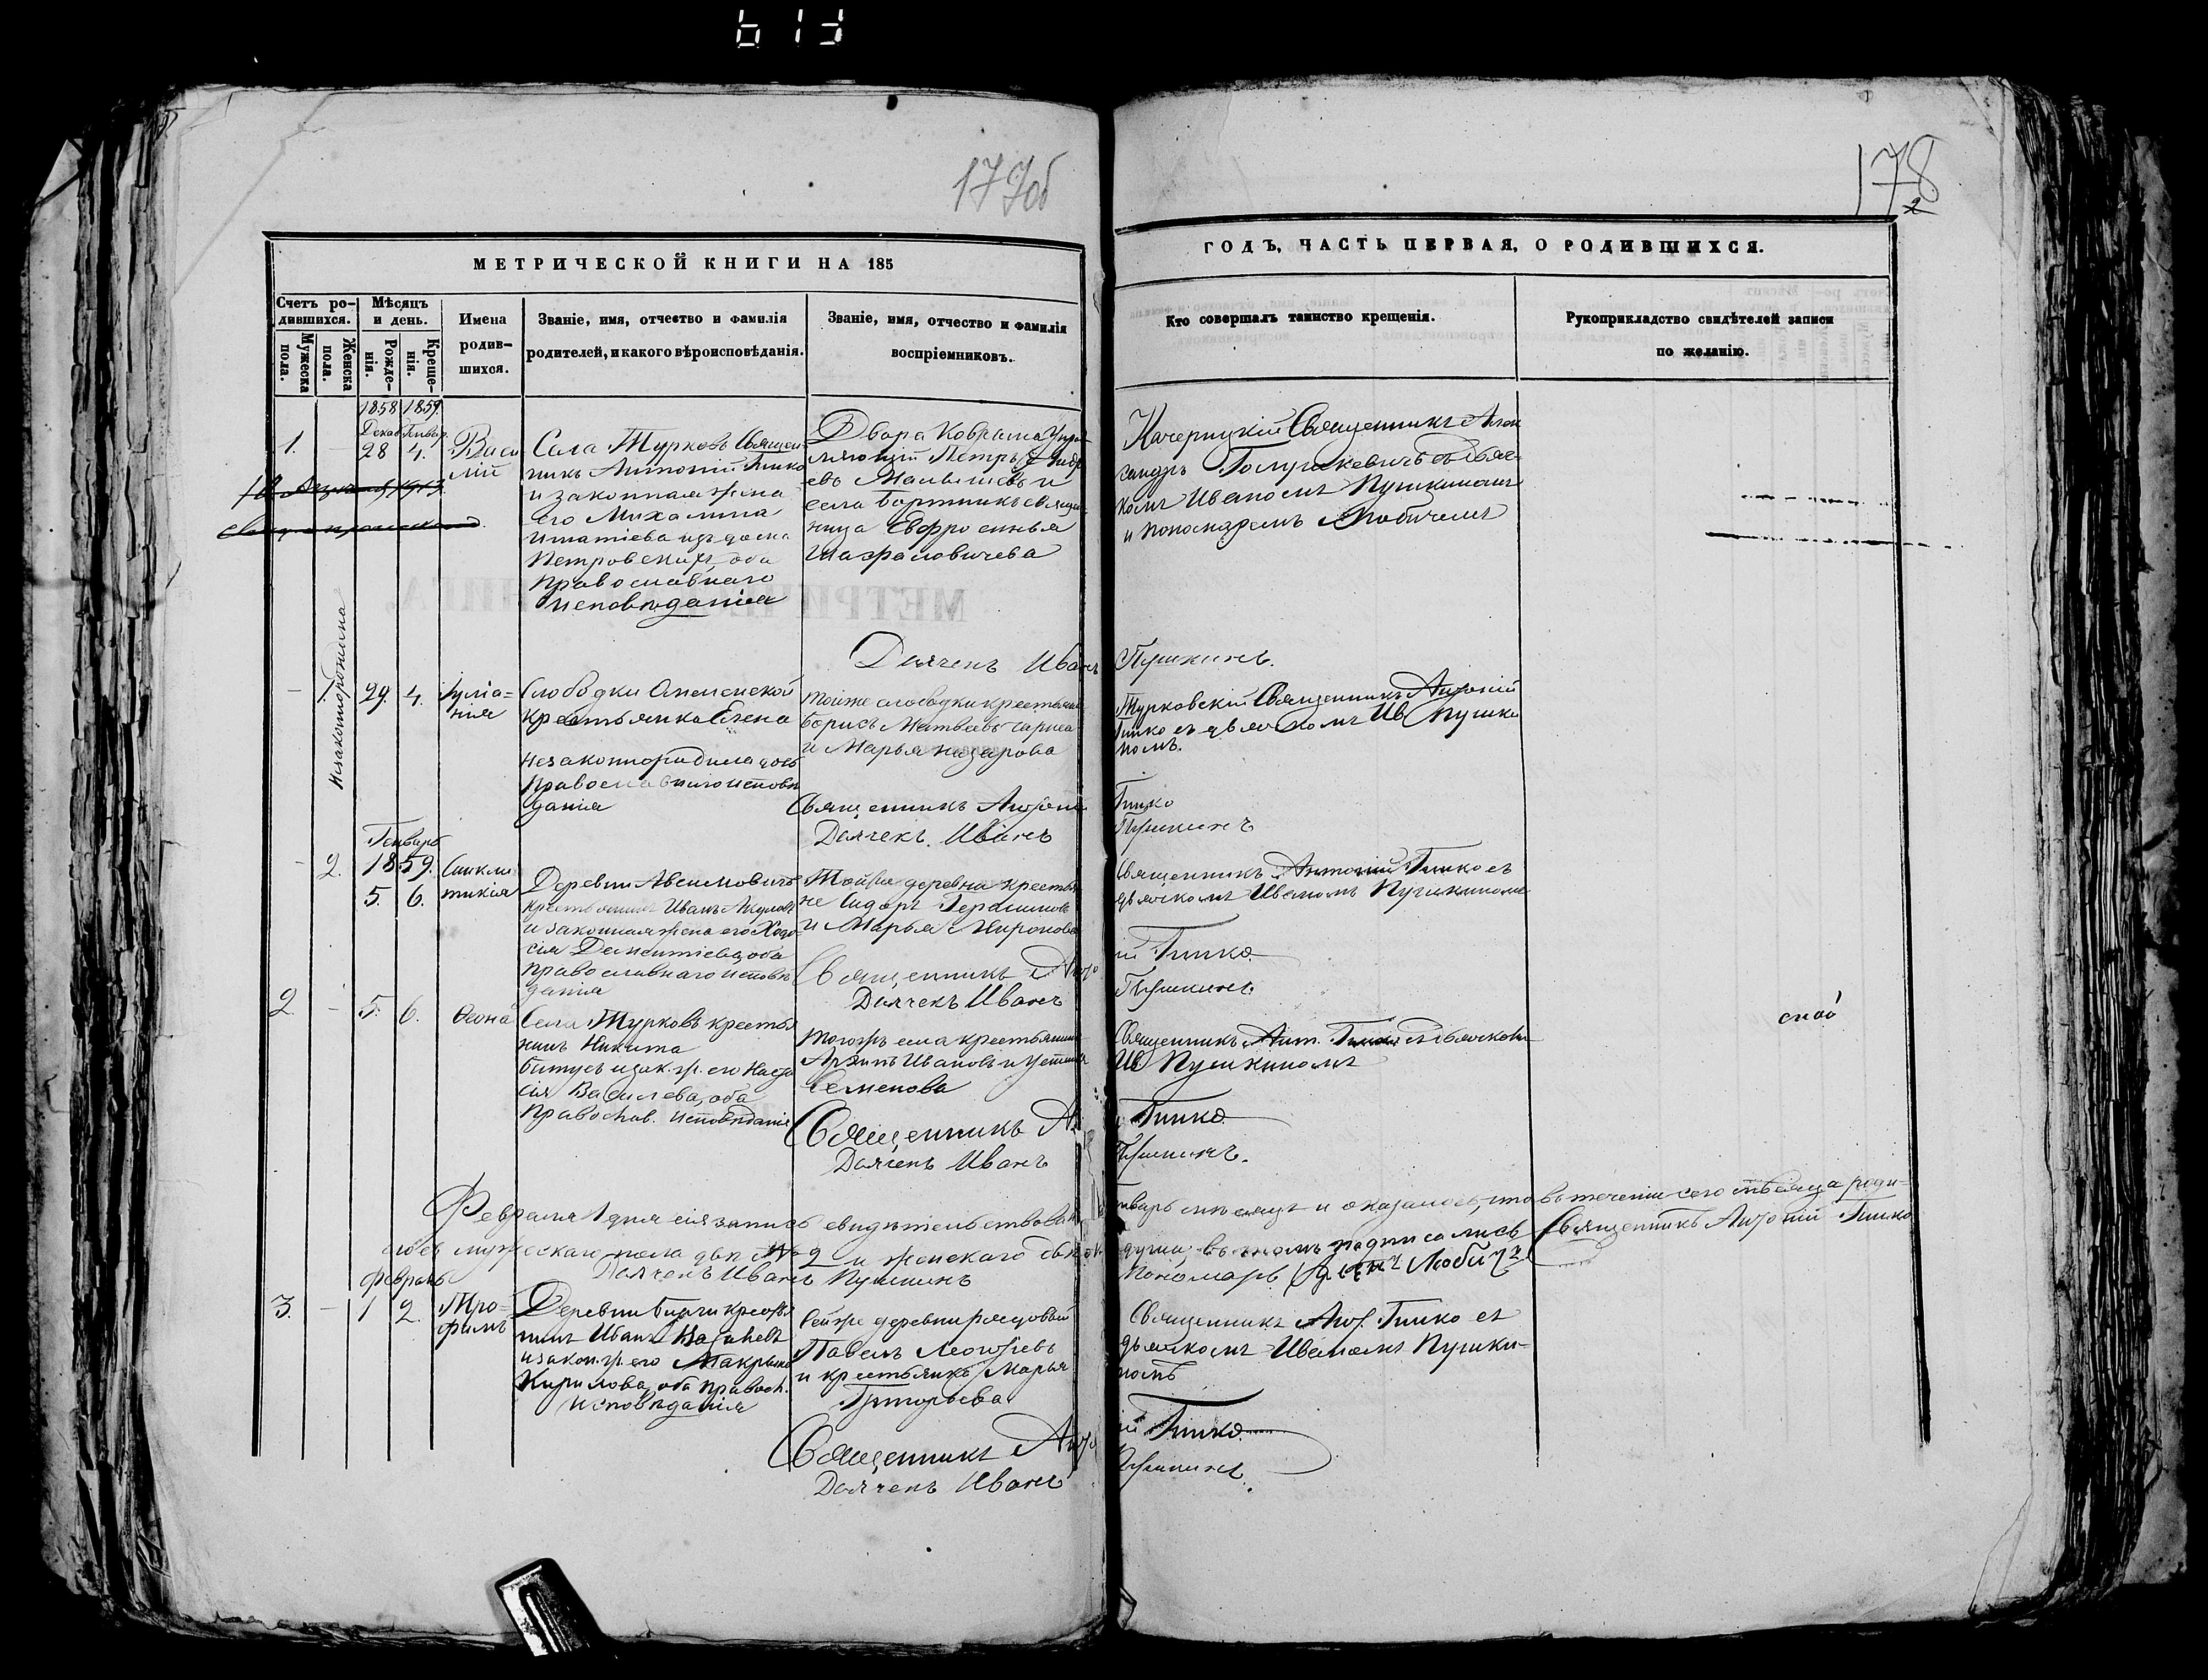 177об
178
МЕТРИЧЕСКОЙ КНИГИ НА 185
ГОДЪ, ЧАСТЬ ПЕРВАЯ, О РОДИВШИХСЯ.
Счетъ ро-
дившихся.
Мужеска
пола.
Женска
пола.
Мѣсяцъ
и день.
Рожде-
нія.
Креще-
нія.
Имена
родив-
шихся.
Званіе, имя, отчество и фамилія
родителей, и какого вѣроисповѣданія.
Званіе, имя, отчество и фамилія
воспріемниковъ.
Кто совершалъ таинство крещенія.
Рукоприкладство свидѣтелей записи
по желанію.
1858 1859.
Декаб. Генвар.
1. - 28 4.
Васи
лій
Села Турковъ Священ-
никъ Антоній Гинко
и законная жена
его Михалина
Игнатіева изъ дома
Петровскихъ, оба
Православнаго
исповѣданія
Двора Коврына Упра
вляющій Петръ Андре
евъ Малышевъ и
села Бортникъ священ
ница Евфросинья
Священникъ Алек
сандръ Голушкевичъ съ дьяч-
комъ Иваномъ Пушкинымъ
и пономаремъ Любичемъ
Дьячекъ Иванъ Пушкинъ.
Незаконнорождена
- 1. 29. 4.
Іуліа=
нія
Слободки
крестьянка Елена
незаконнородила дочь
Православнаго исповѣ
данія
Тойже слободки крестьяне
Борисъ Матвѣевъ
и Марья Назарова
Турковскій Священникъ Антоній
Гинко съ дьячкомъ Ив Пушки
номъ.
Священникъ Антоній Гинко
Дьячекъ Иванъ Пушкинъ
Генварь
1859.
- 2. 5. 6.
Синкли
тикія
Деревни Авсимовичъ
крестьянинъ Иванъ Акуловъ
и законная жена его Ходо-
сія Дементіева, оба
православнаго исповѣ
данія
Той же деревни крестья
не Сидоръ Герасимовъ
и Марья Миронова
Священникъ Антоній Гинко съ
дьячкомъ Иваномъ Пушкиномъ
Священникъ Антоній Гинко.
Дьячекъ Иванъ Пушкинъ
2. - 5. 6.
Ѳеона
Села Турковъ крестья
нинъ Никита
Битусъ и зак. ж. его Наста
сія Васильева, оба
Православ. исповѣданія
Тогожъ села крестьянинъ
Архипъ Ивановъ и Устинья
Семенова
Священникъ Ант. Гинко съ дьячкомъ
Ив Пушкиномъ
Священникъ А. Гинко
Дьячекъ Иванъ Пушкинъ.
Февраля 1 дня сія запись свидѣтельствована Генварь мѣсяцъ и оказалось, что въ теченіи сего мѣсяца роди-
лось мужескаго пола двѣ № 2 и женскаго двѣ души; въ чемъ подписались Священникъ Антоній Гинко
Дьячекъ Иванъ Пушкинъ Пономарь Любичъ
Февраль
3. - 1 2.
Тро=
фимъ
Деревни крестья
нинъ Иванъ
и закон. ж. его Макрына
Кирилова, оба правосл.
исповѣданія
Сейже деревни рядовой
Павелъ Леонтіевъ
и крестьянка Марья
Григорьева
Священникъ Ант. Гинко съ
дьячкомъ Иваномъ Пушки-
номъ
Священникъ Антоній Гинко.
Дьячекъ Иванъ Пушкинъ